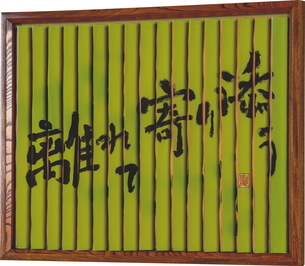 離れて寄り添う